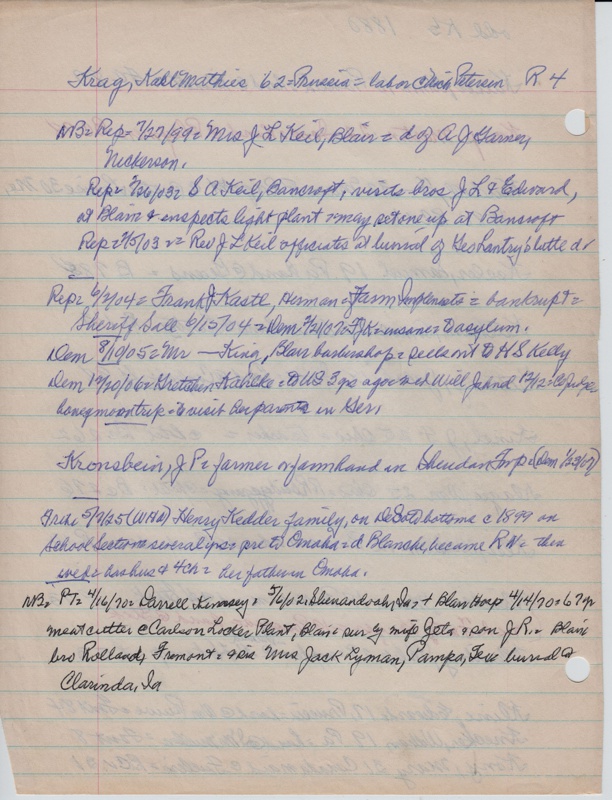 Krag, Karl Mathies 62 = Prussia = labor c Peterson R 4
NB = Rep = 7/27/99 = Mrs J L Keil, Blair = d of A J Garner,
Nickerson.
Rep = /26/03 = S A Keil, Bancroft, visits bros J L & Edward,
at Blair & inspects light plant = may set one up at Bancroft
Rep = /5/03 = Rev J L Keil officiates at burial of Geo Lantry's little dr
Rep = 6/2/04 = Frank J Kastl, Herman = Farm Implements = bankrupt =
Sheriff Sale 6/15/04 = Dem 9/2/07 = FJK = insane = to asylum.
Dem 8/10/05 = Mr — King, Blair barbershop = sells out to H S Kelly
Dem 12/20/06 = Gretchen Kahlke = to US 3 yrs ago = wed Will Jahnel 12/12 = Co Judge =
honeymoon trip = to visit her parents in Ger.
Kronsbein, J P = farmer or farmhand in Sheridan Twp = (Dem 1/29/07)
5/7/25 (WHW) Henry Kedder family, on DeSoto bottoms c 1899 on
School Section several yrs = pre to Omaha = d Blanche, became R N = then
wed = has hus & 4 ch = her father in Omaha.
NB = PT = 4/16/70 = Darrell Kinnsey = 5/6/02, Shenandoah, Ia, + Blair Hosp 4/14/70 = 67 yr
meatcutter c Carlson Locker Plant, Blair = sur by wife Zeta & son J.R. = Blair
bro Rolland, Fremont = & sis Mrs Jack Lyman, Pampa, Tex = burial @
Clarinda, Ia